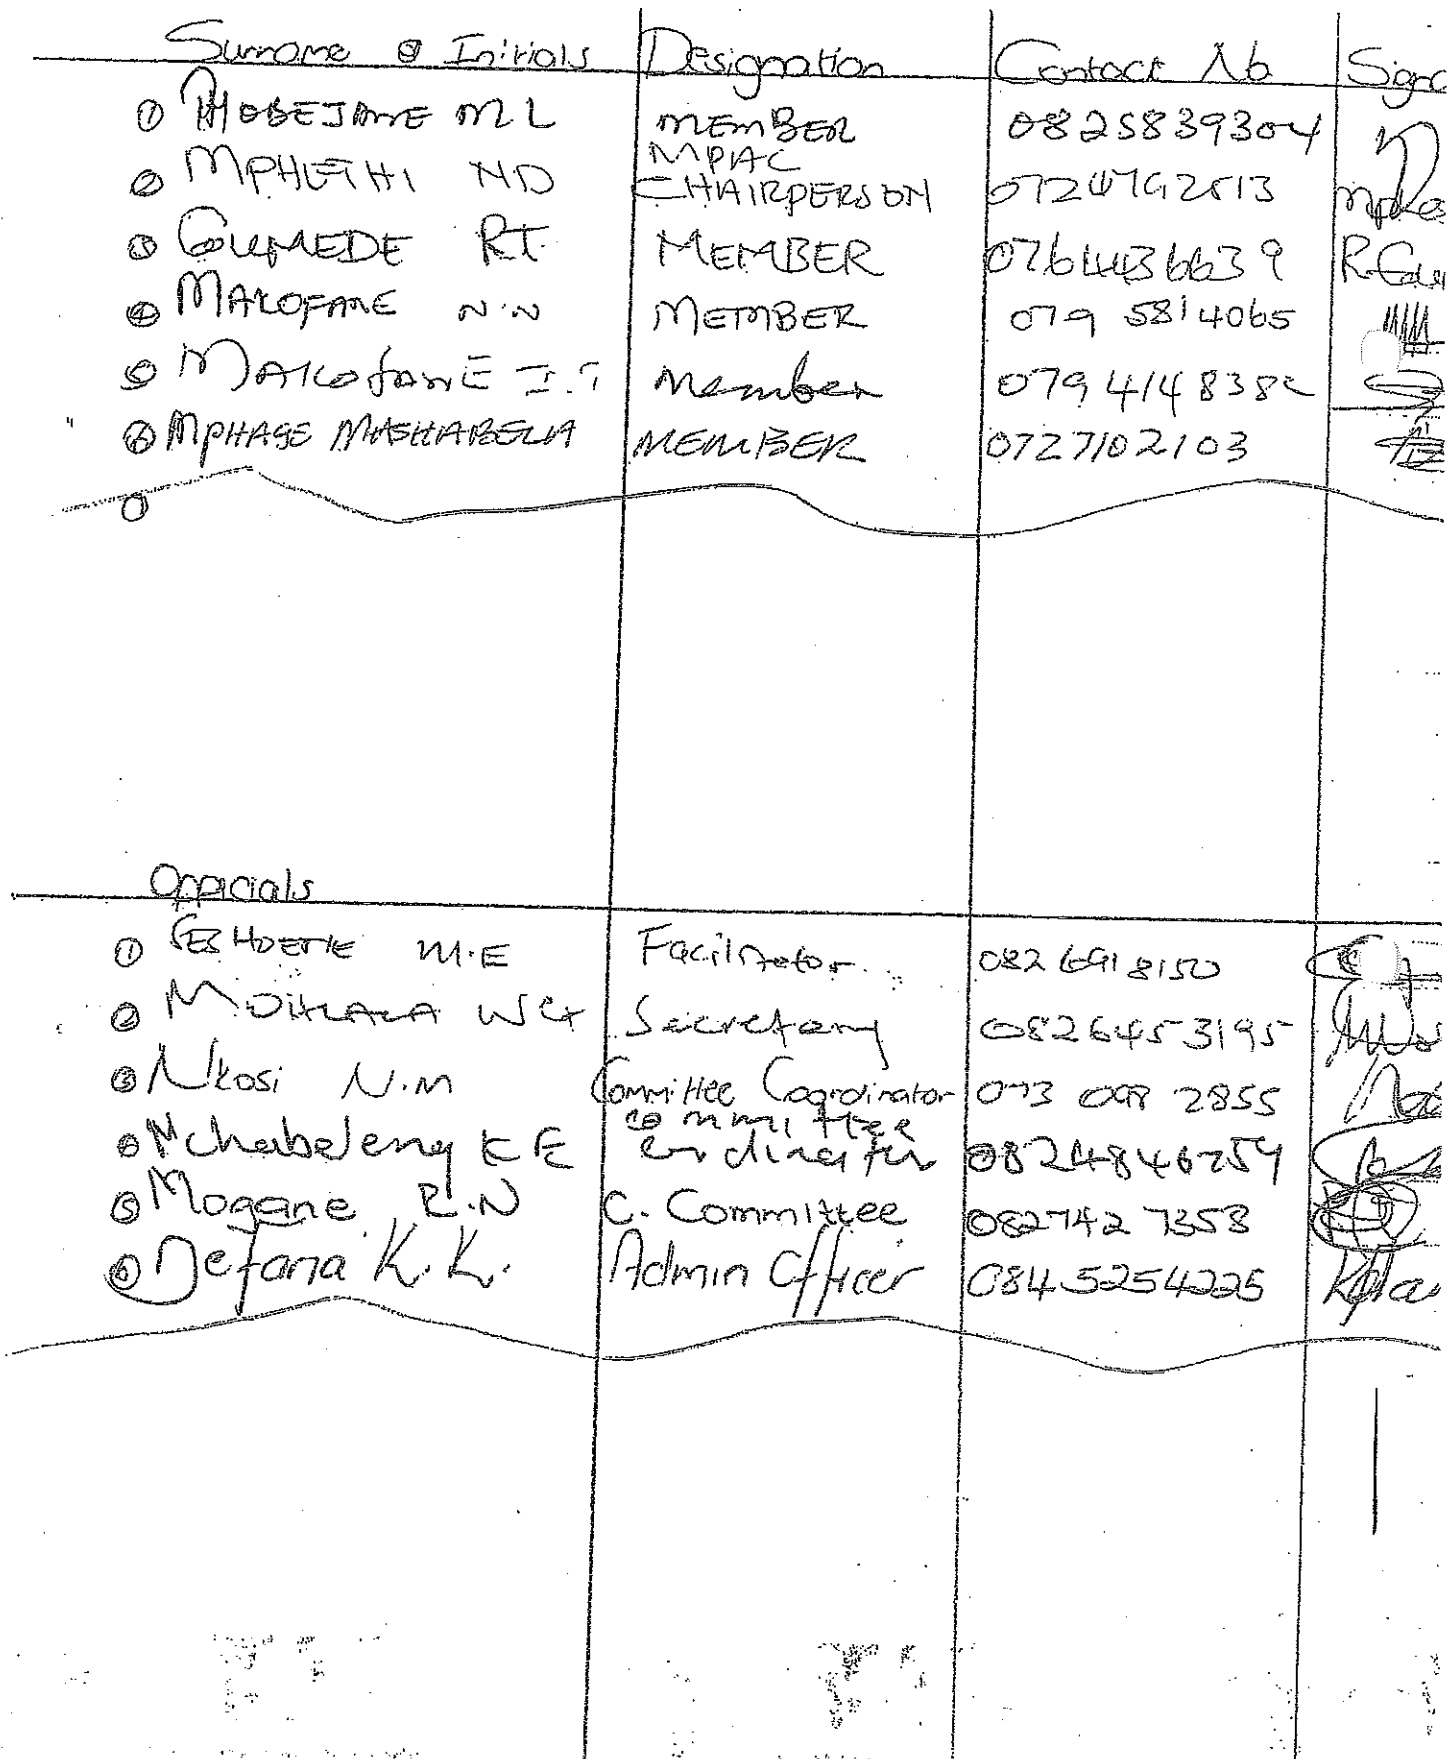 Surname & Initials Designation Contact No Sign
① PHOBEJANE M L MEMBER 0825839304
② MPHETHI ND MPAC CHAIRPERSON 0724792513
③ GUMEDE RT. MEMBER 0761436639
④ MAKOFANE N.N MEMBER 079 5814065
⑤ MAKOFANE I.T Member 079 4148382
⑥ MPHAGE MASHABELA MEMBER 0727102103
Officials
① M.E Facilitator 082 6918150
② W Secretary 0826453195
③ Nkosi N.M Committee Coordinator 073 098 2855
④ Nchabeleng K E committee co-ordinator 0824846259
⑤ Mogane R.N C. Committee 082742 7358
⑥ Nefaria K.K. Admin Officer 0845254225